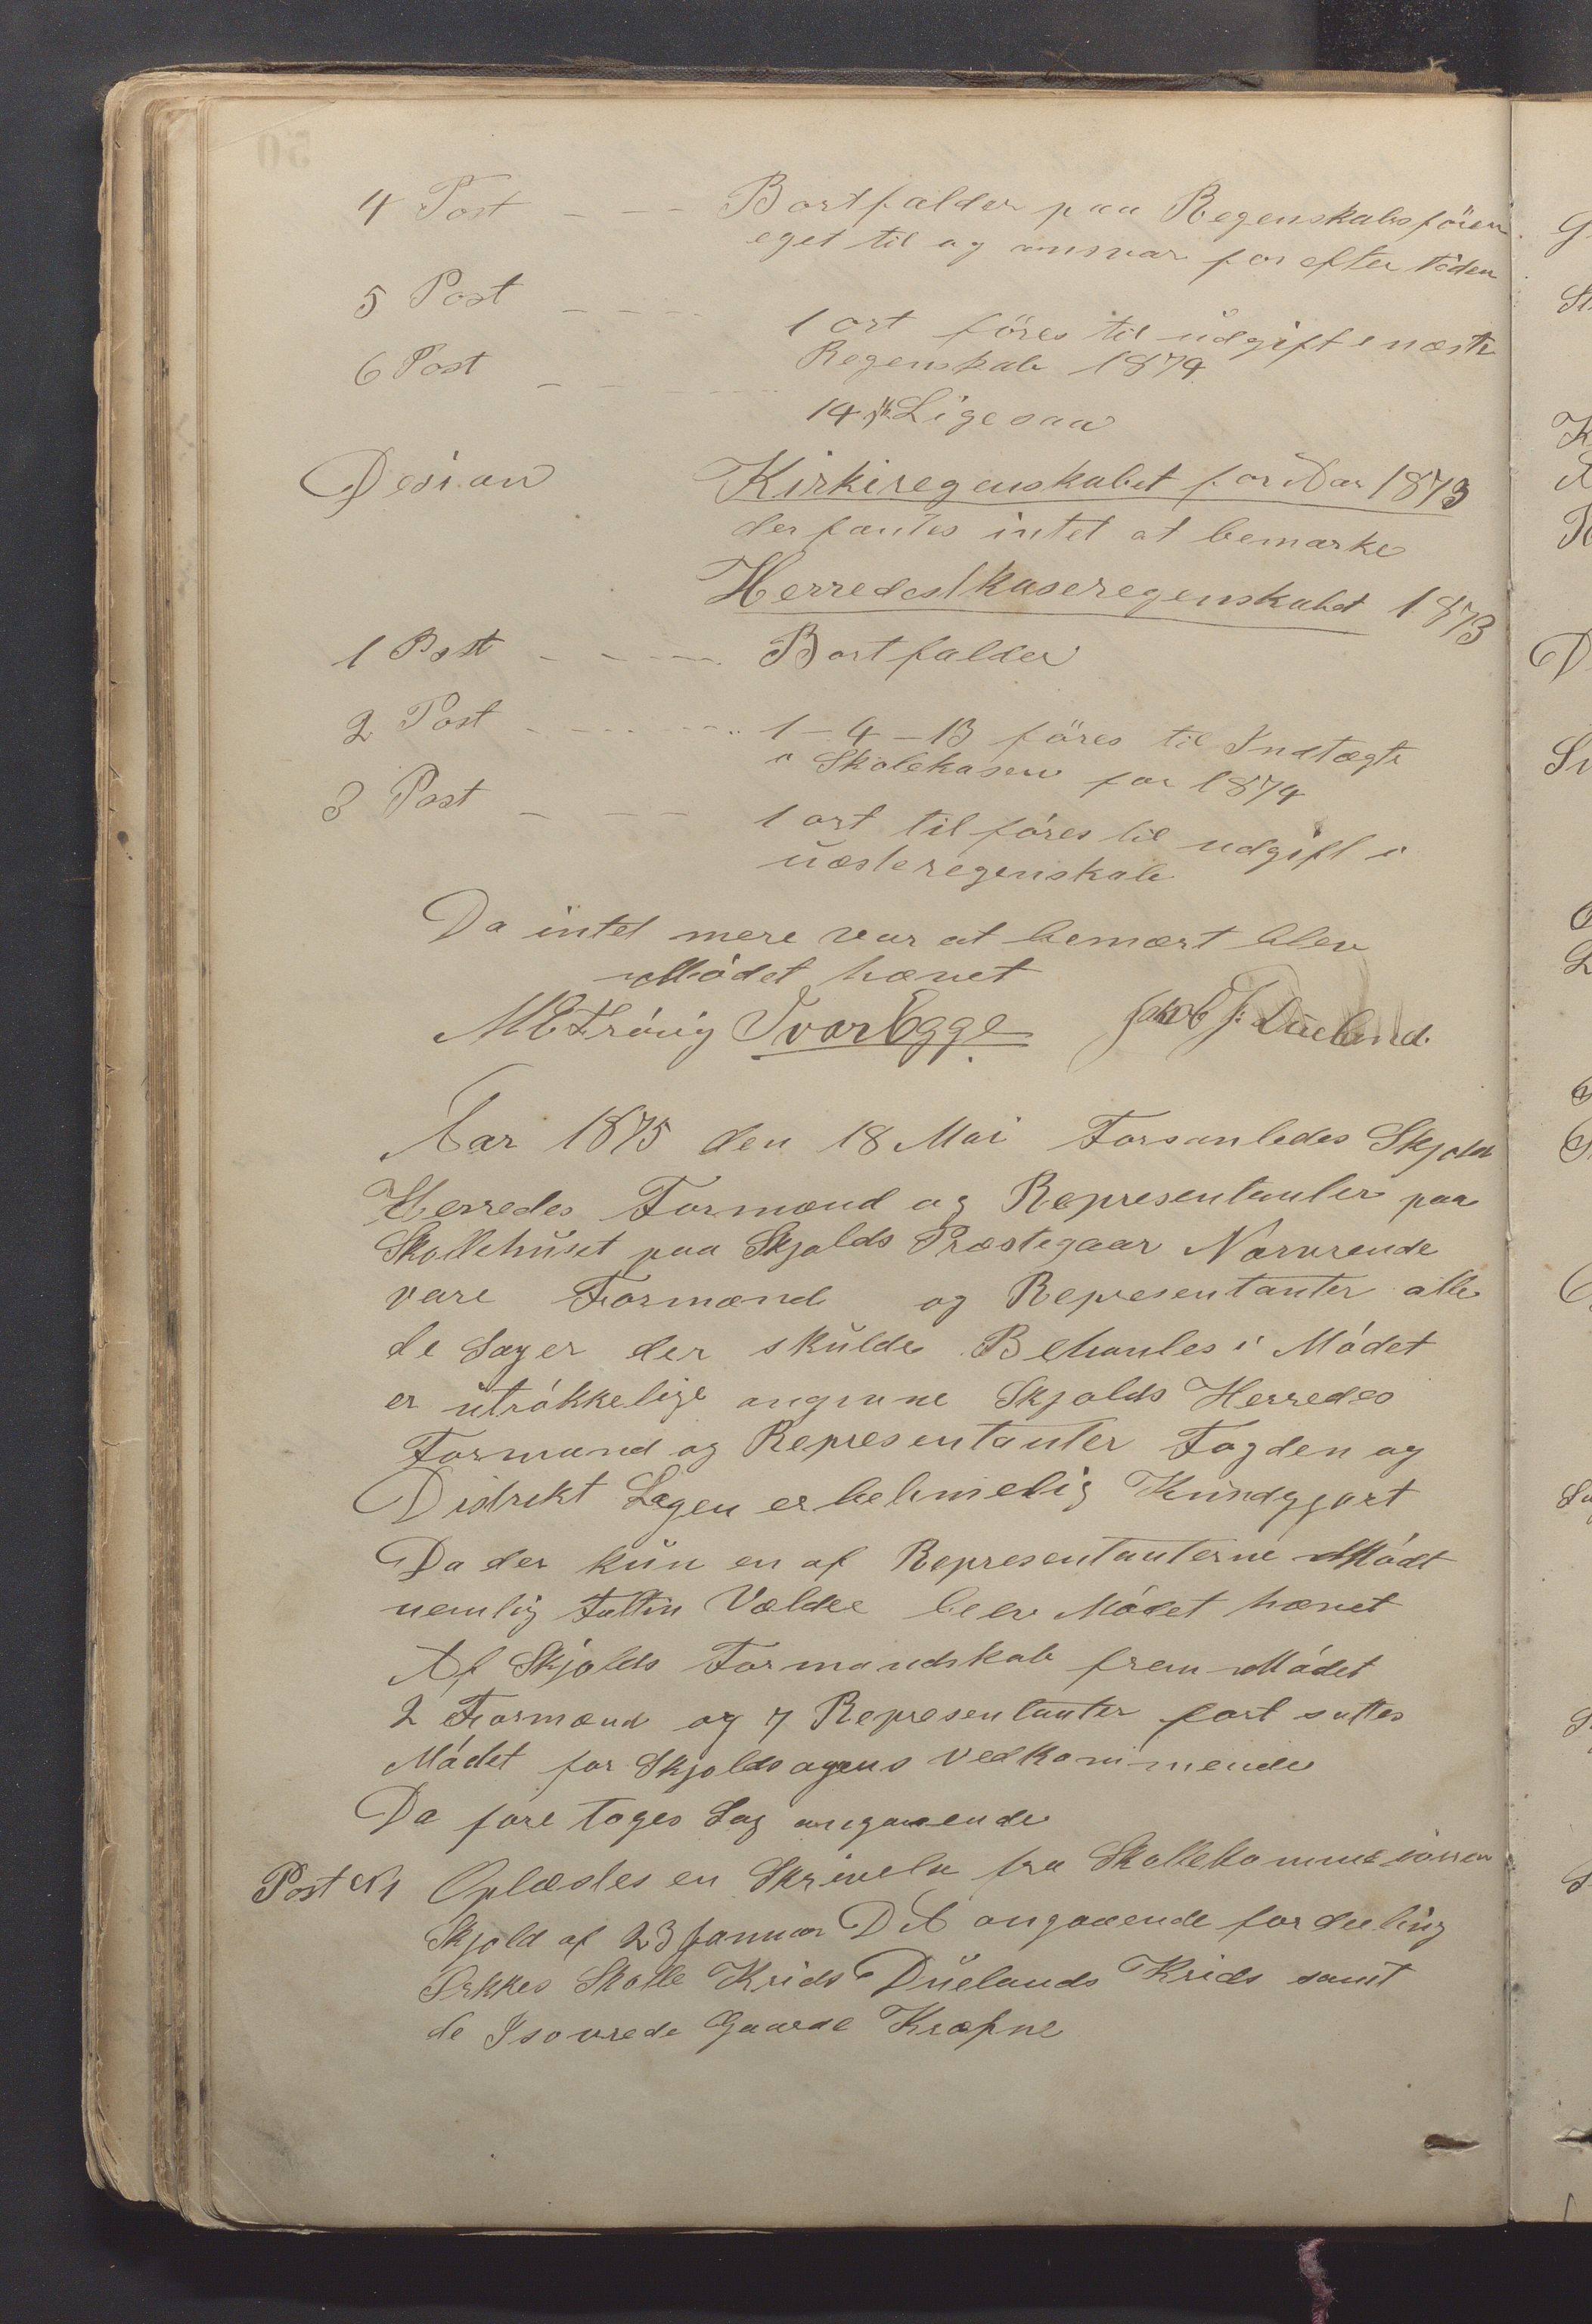 4 Post - - - Bortfalder paa Regenskabsføren
eget til og ansvar for efter tiden
5 Post - - - - 1 ort føres til udgift i næste
Regenskab 1874
6 Post - - - - 14 sk Ligesaa
Kirkeregenskabet for Aar 1873
der fantes intet at bemærke
Herredeskaseregenskabet 1873
1 Post - - - - Bortfalder
2 Post - - - - 1-4-13 føres til Indtægt
i Skolekasen for 1874
3 Post - - - 1 ort til føres til udgift i
næsteregenskab
Da intet mere var at bemært blev
Mødet hævet
Ivar Egge Jakob J. Dueland.
Aar 1875 den 18 Mai Forsamledes Skjold
Herredes Formænd og Representanter paa
Skollehuset paa Skjolds Præstegaar Nærverende
vare Formænd og Representanter alle
de Sager der skulde Behanles i Mødet
er utrøkkelige Skjolds Herredes
Formænd og Representanter Fogden og
Distrikt Lægen er behørelig Kundgjort
Da der kun en af Representanterne Mødt
nemlig Vælde blev Mødet hævet
Af Skjolds Formandskab frem Mødet
2 Formænd og 7 Representanter fort sattes
Mødet for Skjoldsognes vedkommende
Da fore toges Sag angaaende
Post N 1 Oplæstes en Skrivelse fra Skollekommissionen
Skjold af 23 Januar D A angaaende fordeeling
Skolle Krids Duelands Krids samt
de Gaarde